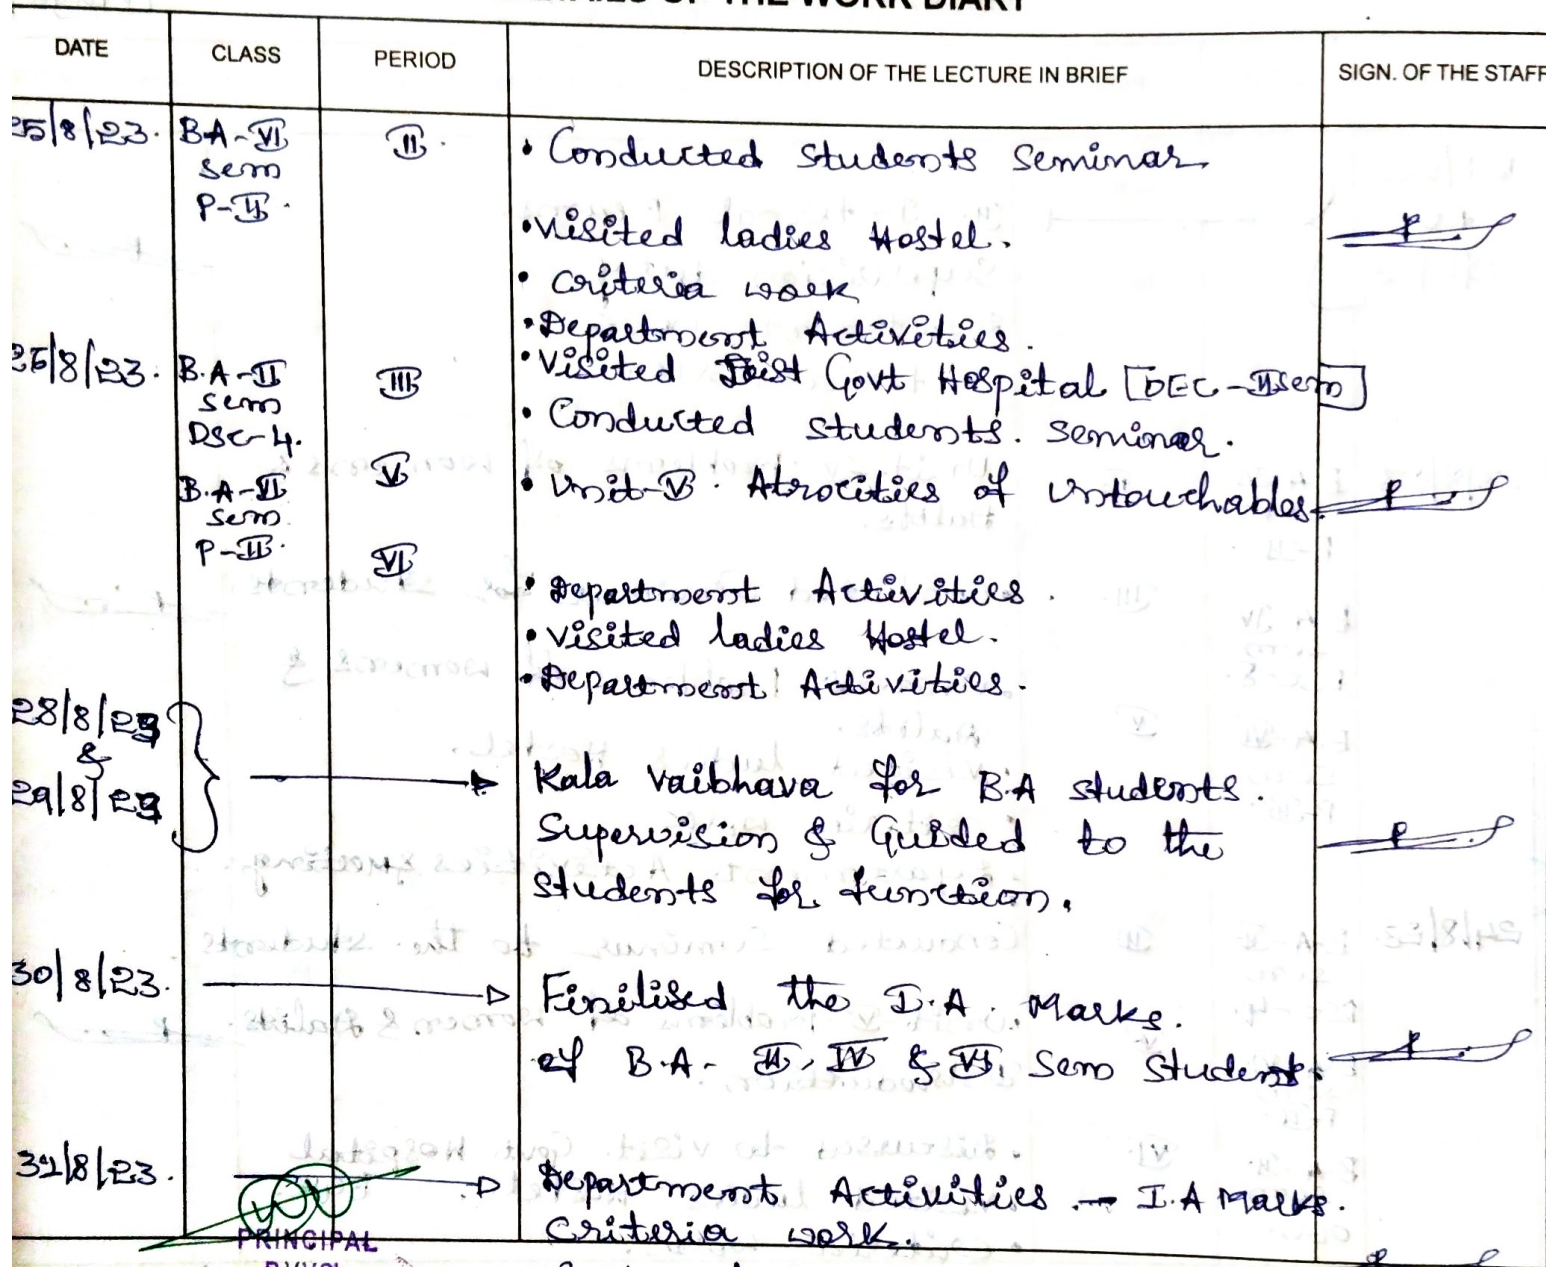 OF THE WORK DIARY
DATE CLASS PERIOD DESCRIPTION OF THE LECTURE IN BRIEF SIGN. OF THE STAFF
25/8/23. B.A-VI II. • Conducted students seminar.
sem
P-II.
• Visited ladies Hostel.
• criteria work
• Department Activities.
26/8/23. B.A-II III • Visited Dist Govt Hospital [DEC-II sem]
sem
DSC-4. • Conducted students. seminar.
B.A-VI V • Unit-V. Atrocities of Untouchables
sem
P-II. VI
• Department Activities.
• Visited ladies Hostel.
• Department Activities.
28/8/23
&
29/8/23
Kala Vaibhava for B.A students.
Supervision & Guided to the
students for function.
30/8/23. Finilised the I.A. Marks.
of B.A- II, IV & VI, Sem Student.
31/8/23. Department Activities - I.A Marks.
Criteria work.
PRINCIPAL